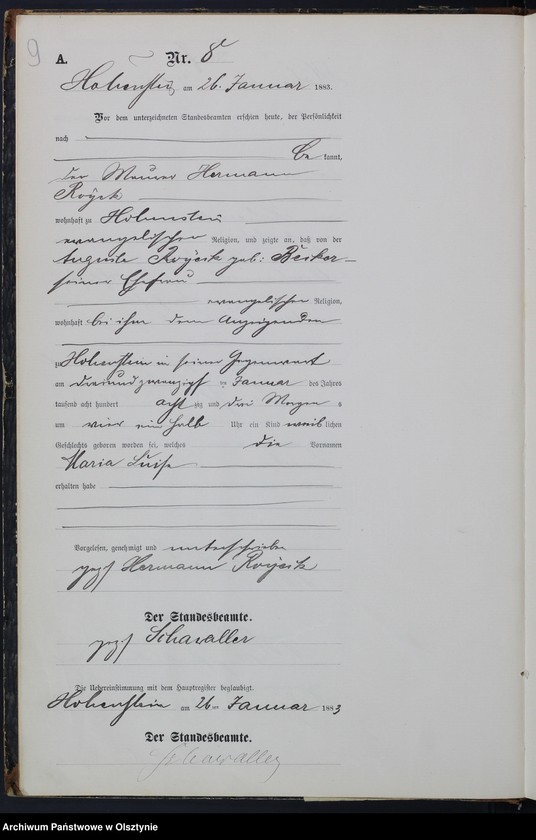 9
A. Nr. 8
Hohenstein am 26. Januar 1883.
Vor dem unterzeichneten Standesbeamten erschien heute, der Persönlichkeit
nach
be kannt,
der Maurer Hermann
wohnhaft zu Hohenstein
evangelischer Religion, und zeigte an, daß von der
Auguste geb: Becker
seiner Ehefrau
evangelischer Religion,
wohnhaft bei ihm dem Anzeigenden
zu Hohenstein in seiner Gegenwart
am dreiundzwanzigsten Januar des Jahres
tausend acht hundert acht zig und drei Morgens
um vier ein halb Uhr ein Kind weib lichen
Geschlechts geboren worden sei, welches die Vornamen
Maria Luise
erhalten habe
Vorgelesen, genehmigt und unterschrieben
gez Hermann
Der Standesbeamte.
gez Schawaller
Die Uebereinstimmung mit dem Hauptregister beglaubigt.
Hohenstein am 26ten Januar 1883
Der Standesbeamte.
Schawaller
Archiwum Państwowe w Olsztynie